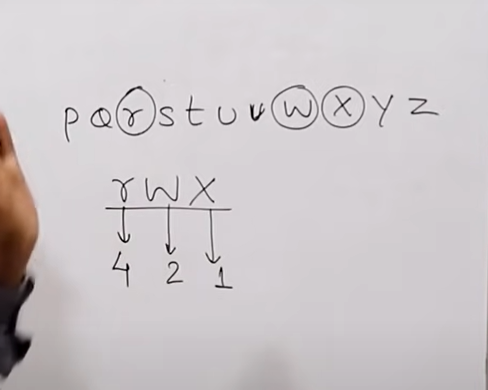 p q r s t u v w x y z
r w x
4 2 1